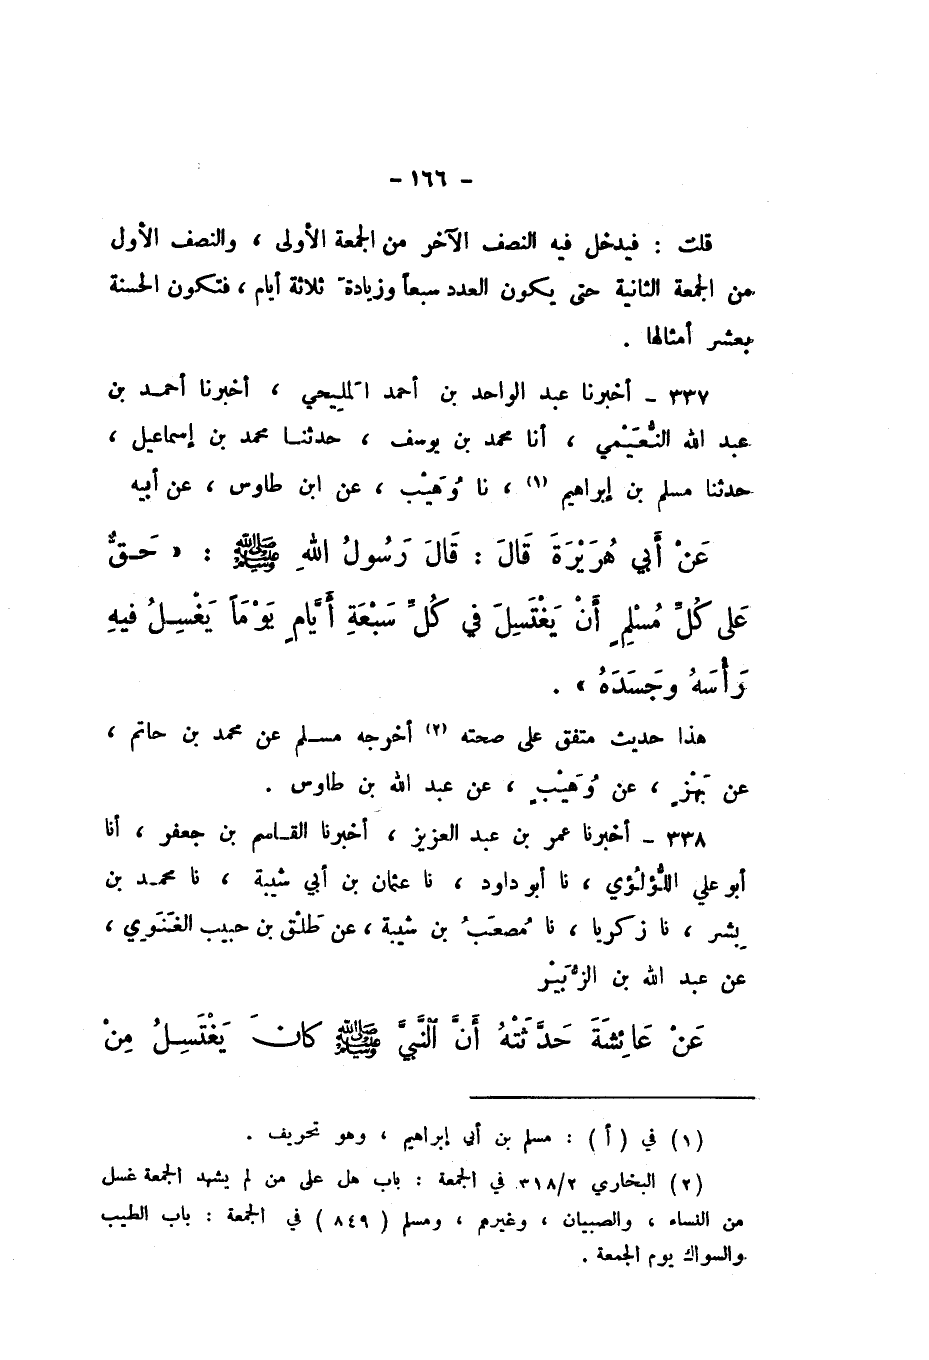 - ١٦٦ -
قلت : فيدخل فيه النصف الآخر من الجمعة الأولى ، والنصف الأول
من الجمعة الثانية حتى يكون العدد سبعاً وزيادةَ ثلاثة أيام ، فتكون الحسنة
بعشر أمثالها .
٣٣٧ - أخبرنا عبد الواحد بن أحمد المَليحي ، أخبرنا أحمد بن
عبد الله النُّعَيْمي ، أنا محمد بن يوسف ، حدثنا محمد بن إسماعيل ،
حدثنا مسلم بن إبراهيم (١) ، نا وُهَيْب ، عن ابن طاوس ، عن أبيه
عَنْ أَبي هُرَيْرَةَ قَالَ : قَالَ رَسُولُ اللهِ ﷺ : « حَقٌّ
عَلى كُلِّ مُسْلِمٍ أَنْ يَغْتَسِلَ في كُلِّ سَبْعَةِ أَيَّامٍ يَوْمَاً يَغْسِلُ فيهِ
رَأْسَهُ وجَسَدَهُ » .
هذا حديث متفق على صحته (٢) أخرجه مسلم عن محمد بن حاتم ،
عن بَهْزٍ ، عن وُهَيْبٍ ، عن عبد الله بن طاوس .
٣٣٨ - أخبرنا عمر بن عبد العزيز ، أخبرنا القاسم بن جعفر ، أنا
أبو علي اللُّؤلُؤي ، نا أبو داود ، نا عثمان بن أبي شيبة ، نا محمد بن
بِشر ، نا زكريا ، نا مُصعَبُ بن شيبة ، عن طَلْق بن حبيب العَنَزِي ،
عن عبد الله بن الزُّبَيْر
عَنْ عَائِشَةَ حَدَّثَتْهُ أَنَّ النَّبيَّ ﷺ كانَ يَغْتَسِلُ مِنْ
(١) في ( أ ) : مسلم بن أبي إبراهيم ، وهو تحريف .
(٢) البخاري ٣١٨/٢ في الجمعة : باب هل على من لم يشهد الجمعة غسل
من النساء ، والصبيان ، وغيرهم ، ومسلم ( ٨٤٩ ) في الجمعة : باب الطيب
والسواك يوم الجمعة .